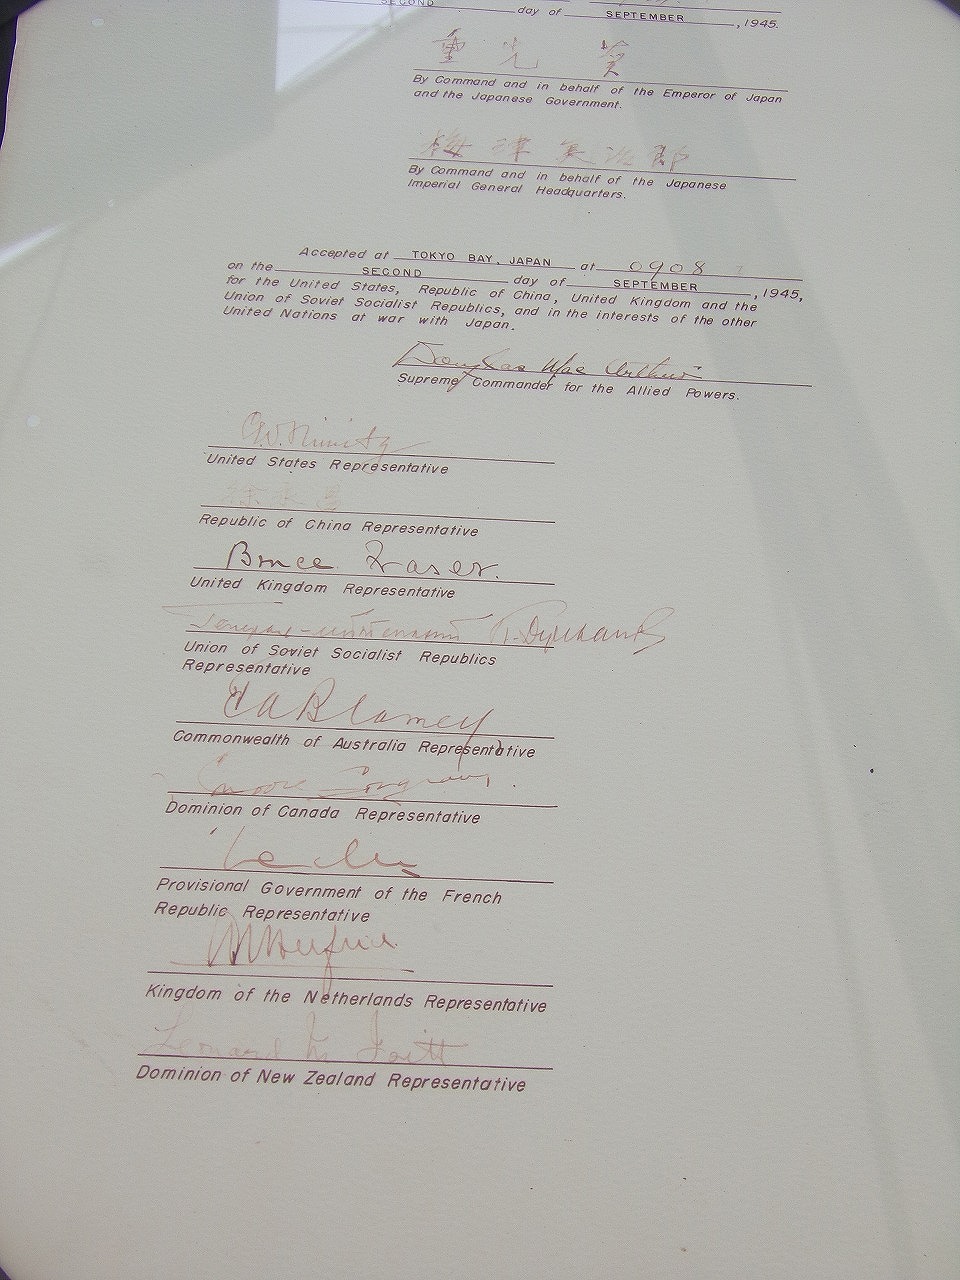 SECOND day of SEPTEMBER, 1945.
重光葵
By Command and in behalf of the Emperor of Japan
and the Japanese Government.
梅津美治郎
By Command and in behalf of the Japanese
Imperial General Headquarters.
Accepted at TOKYO BAY, JAPAN at 0908
on the SECOND day of SEPTEMBER, 1945,
for the United States, Republic of China, United Kingdom and the
Union of Soviet Socialist Republics, and in the interests of the other
United Nations at war with Japan.
Douglas MacArthur
Supreme Commander for the Allied Powers.
C.W. Nimitz
United States Representative
徐永昌
Republic of China Representative
Bruce Fraser.
United Kingdom Representative
Union of Soviet Socialist Republics
Representative
T A Blamey
Commonwealth of Australia Representative
Dominion of Canada Representative
Provisional Government of the French
Republic Representative
Kingdom of the Netherlands Representative
Leonard M Isitt
Dominion of New Zealand Representative